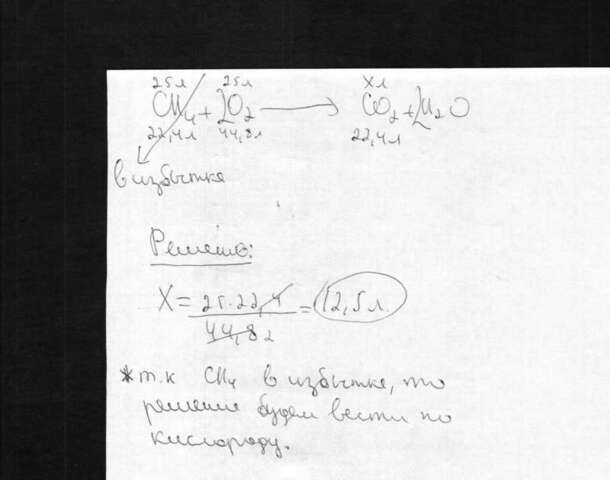 25л 25л Xл
CH₄ + 2O₂ → CO₂ + 2H₂O
22,4л 44,8л 22,4л
в избытке
Решение:
X = 25·22,4 = 12,5л.
44,8 2
*т.к CH₄ в избытке, то
решение будем вести по
кислороду.